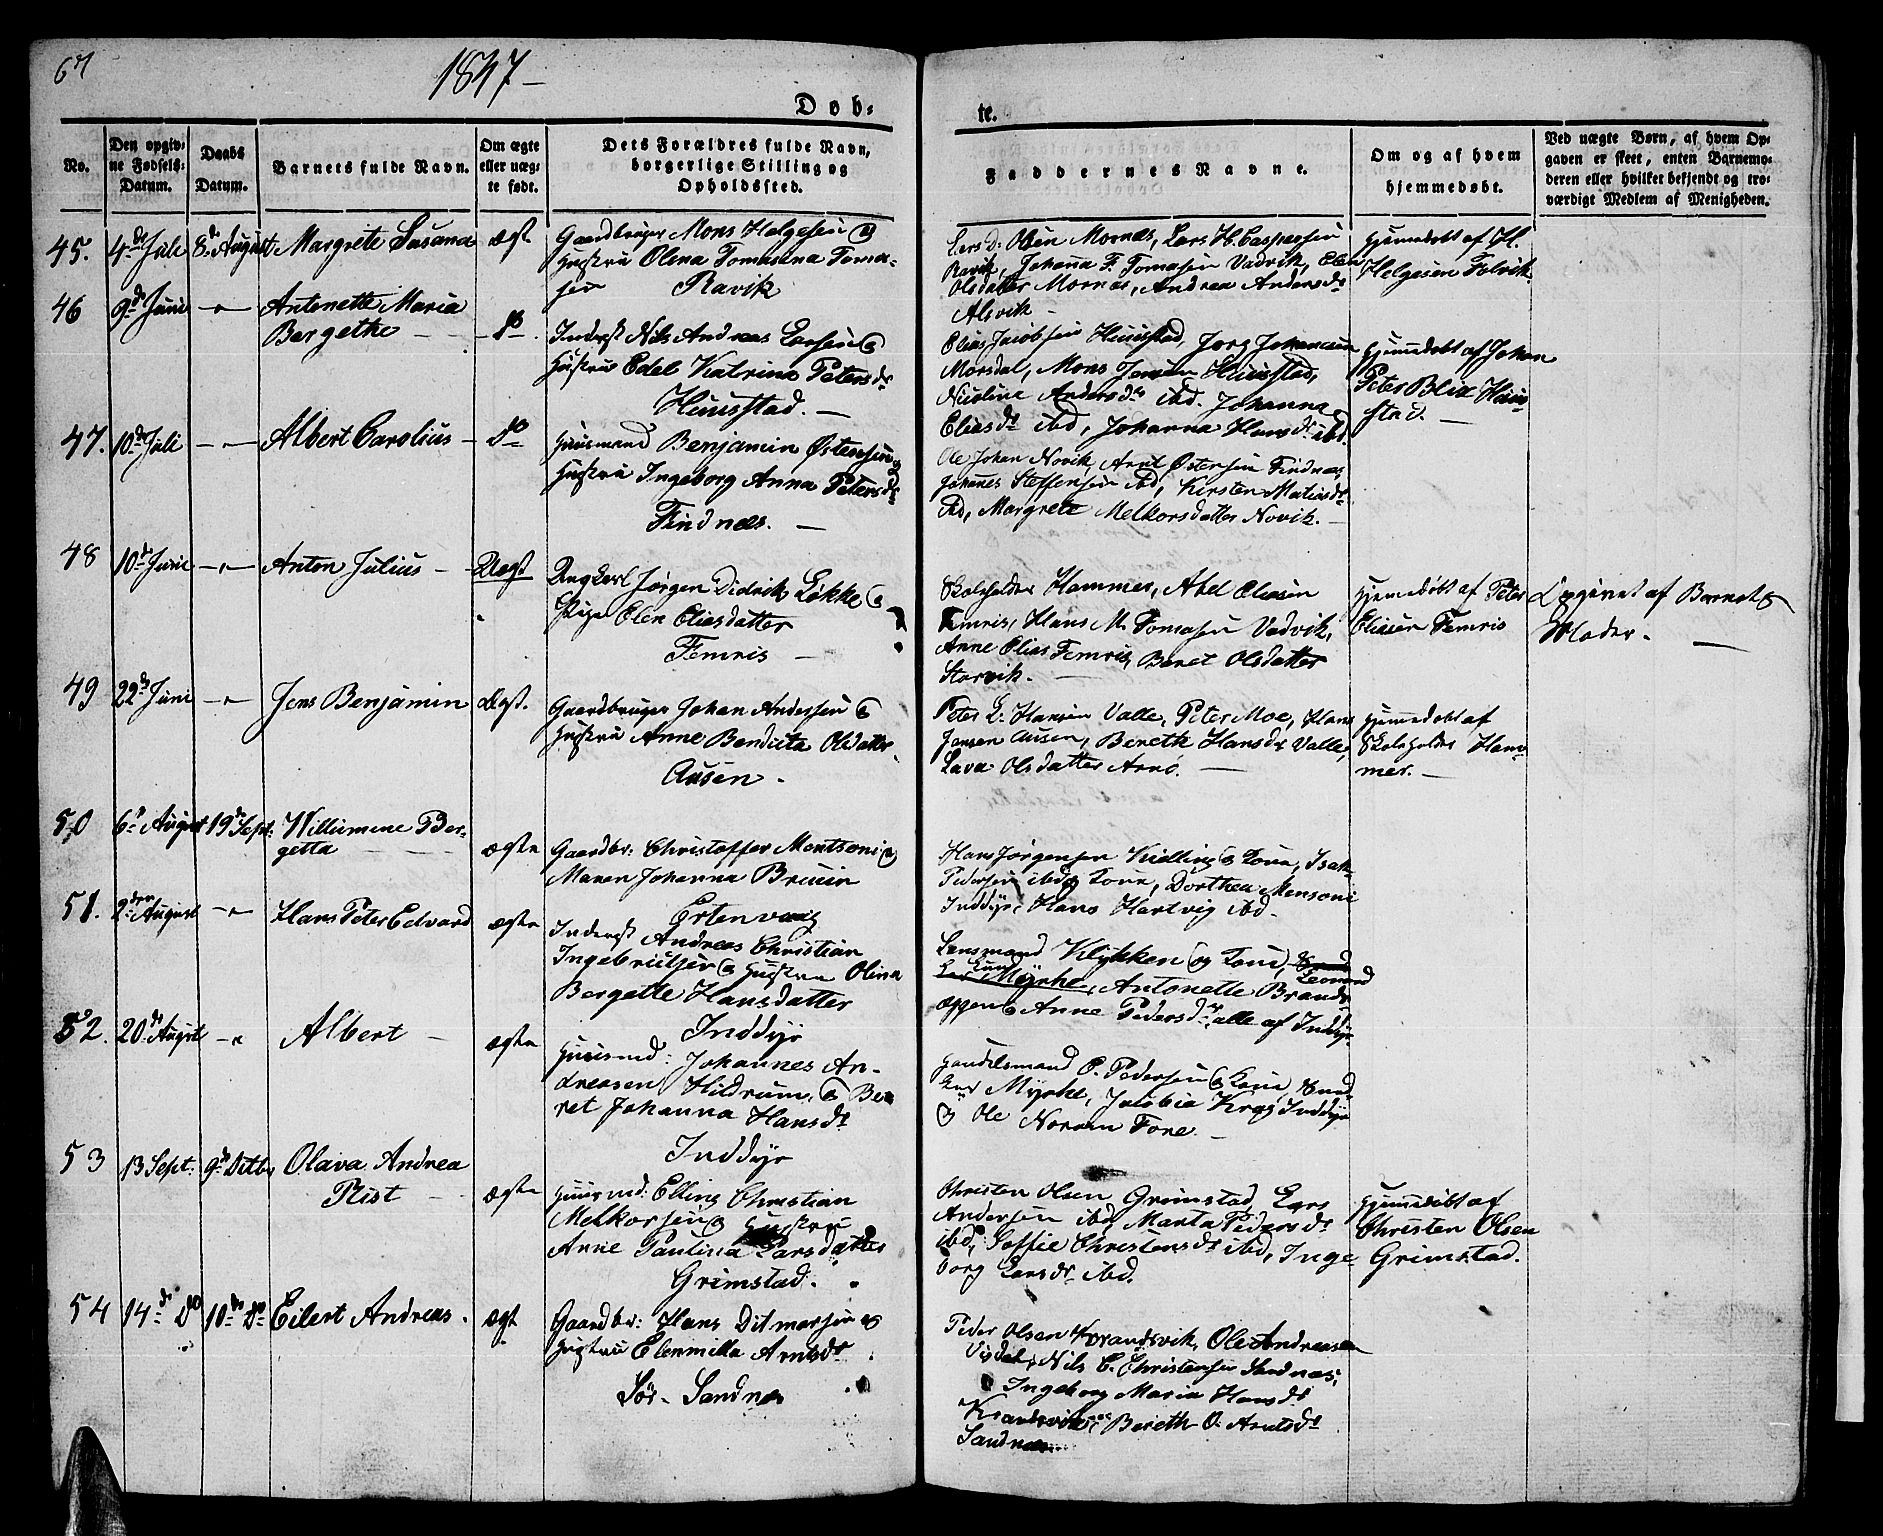 67
1847 -
Dob-
te.
No.
Den opgiv-
ne Fødsels-
Datum.
Daabs
Datum.
Barnets fulde Navn.
Om ægte
eller uæg-
te født.
Dets Forældres fulde Navn,
borgerlige Stilling og
Opholdssted.
Faddernes Navne.
Om og af hvem
hjemmedøbt.
Ved uægte Børn, af hvem Op-
gaven er skeet, enten Barnemo-
deren eller hvilket bekjendt og tro-
værdigt Medlem af Menigheden.
45. 4de Juli 8de August Margrete Susana ægt
Gaardbruger Mons Helgesen og
Hustru Olena Tomasina Toma-
sen Ravik
Lars D. Olsen Mornæs, Lars H. Caspersen
Ravik, Johanna F. Tomasen Vadvik, Elen
Olsdatter Mornæs, Andrea Andersdr
Alsvik -
Hjemmedøbt af H.
Helgesen Felvik
46 9de Juni - " - Antonette Maria
Bergethe - do -
Inderst Nils Andreas Larsen &
Hustru Edel Katrina Petersdr
Huusstad. -
Elias Jacobsen Huusstad, Jørg Johansen
Morsdal, Mons Jensen Huusstad,
Nicoline Andersdr ibd. Johanna
Eliasdr ibd, Johanna Hansdr ibd.
Hjemmedøbt af Johan
Peter Blix Huus-
stad. -
47. 10de Juli - " - Albert Carolius - do
Huusmand Benjamin Østensen &
Hustru Ingeborg Anna Petersdr
Findnæs. -
Ole Johan Novik, Arnt Østensen Findnæs,
Johannes Steffensen ibd, Kirsten Matiasdr
ibd, Margrete Melkorsdatter Novik. -
48 10de Juni - " - Anton Julius - Uægt
Ungkarl Jørgen Didrik Løkke &
Pige Elen Eliasdatter
Femris -
Skoleholder Hammer, Abel Eliasen
Femris, Hans M. Tomasen Vadvik,
Anne Elias Femris, Beret Olsdatter
Storvik. -
Hjemmedøbt af Peter
Eliasen Femris
Opgivet af Barnets
Moder. -
49 22de Juni - " - Jens Benjamin Ægt.
Gaardbruger Johan Andersen &
Hustru Anne Bendicta Olsdatter
Ausen -
Peter L. Hansen Valle, Peter Moe, Hans
Jensen Ausen, Bereth Hansdr Valle,
Lava Olsdatter Arnö. -
Hjemmedøbt af
Skoleholder Ham-
mer. -
50 6te August 19de Sept: Willumine Ber-
getta ægte
Gaardbr: Christoffer Montsoni &
Maren Johanna Bruun
Ertenvaag
Hans Jørgensen Kielling & Kone, Isak
Pedersen ibd & Kone, Dorthea Monsoni
Inddyr, Hans Hartvig ibd.
51. 2den August - " - Hans Peter Edvard ægte
Inderst Andreas Christian
Ingebrigtsen & Hustru Olina
Bergette Hansdatter
Inddyr
Lensmand Klykken og Kone,
Myrhe, Antonette Brands-
æggen & Anne Pedersdr, alle af Inddyr
52. 20de August - " Albert - ægte
Huusmd: Johannes An-
dreasen Hildrum, & Be-
ret Johanna Hansdr
Inddyr
Handelsmand P. Pedersen & Kone,
Myrhe, Jacobia Krog Inddyr
& Ole Norum Fore. -
53 13 Sept. 9de Octbr Olava Andrea
Rist - ægte
Huusmd. Elling Christian
Melkorsen & Hustru
Anne Paulina Larsdatter
Grimstad.
Christen Olsen Grimstad, Lars
Andersen ibd, Marta Pedersdr
ibd, Soffie Christensdr ibd, Inge-
borg Larsdr ibd.
Hjemmedøbt af
Christen Olsen
Grimstad.
54 14de do 10de do Eilert Andreas. ægt
Gaardbr: Hans Ditmarsen og
Hustru Elenmilla Arntsdr
Sör-Sandnæs
Peder Olsen Strandsvik, Ole Andreassen
Nils C. Christensen Sandnæs,
Ingeborg Maria Hansdr
Bereth O. Arntsdr
Sandnæs